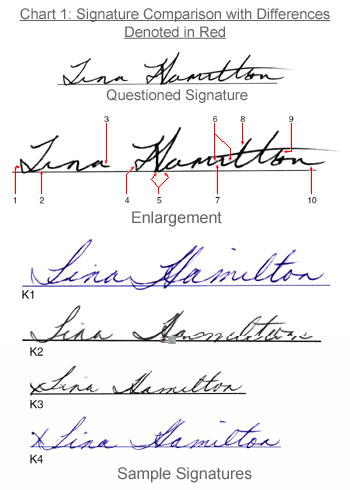 Chart 1: Signature Comparison with Differences
Denoted in Red
Tina Hamilton
Questioned Signature
3 6 8 9
Tina Hamilton
1 2 4 5 7 10
Enlargement
Lina Hamilton
K1
Lina Hamilton
K2
x Lina Hamilton
K3
x Lina Hamilton
K4
Sample Signatures